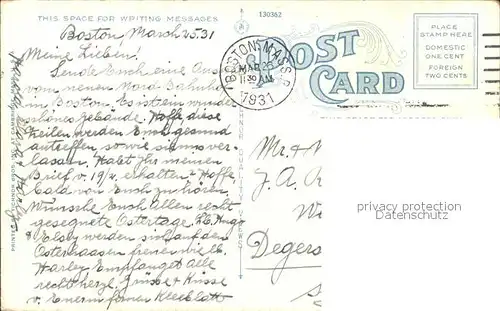 THIS SPACE FOR WRITING MESSAGES
130362
POST CARD
PLACE STAMP HERE
DOMESTIC ONE CENT
FOREIGN TWO CENTS
BOSTON, MASS.
MAR 25
11 30 AM
1931
Boston, March 25.31
Meine Lieben!
Sende Euch eine Ans
vom neuen Nord Bahnhof
in Boston. Es ist ein wunder
schönes Gebäude. Hoffe diese
Zeilen werden Euch gesund
antreffen so wie sie uns ver-
lassen. Habt Ihr meinen
Brief v. 19/ erhalten? Hoffe
bald von Euch zu hören.
Wünsche Euch Allen recht
gesegnete Ostertage. Lb. Hugo
& Elsby werden sich auf den
Osterhaasen freuen wie lb.
Harley. Empfanget Alle
recht herzl. Grüsse & Küsse
v. Eurem fernen Kleeblatt
Mr. &
J. A.
Degers
privacy protection
Datenschutz
QUALITY VIEWS